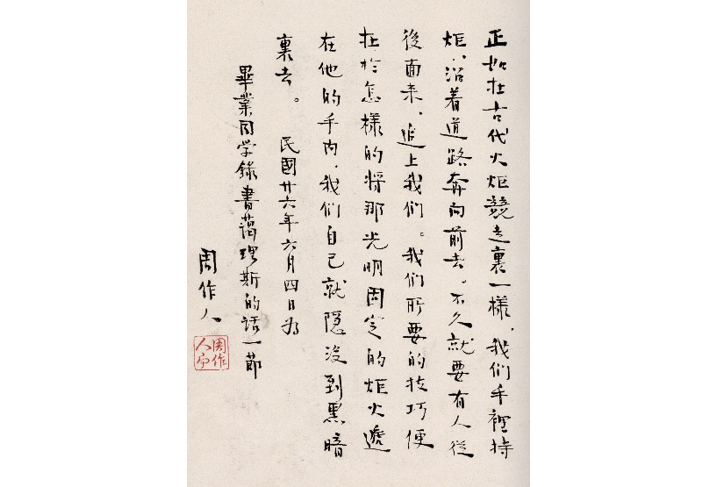 正如在古代火炬競走裏一樣，我们手裡持
炬，沿着道路奔向前去。不久就要有人從
後面来，追上我们。我们所要的技巧便
在於怎樣的将那光明固定的炬火遞
在他的手内，我们自己就隱没到黑暗
裏去。　民國廿六年六月四日为
畢業同学錄書藹理斯的話一節
周作人
周作
人